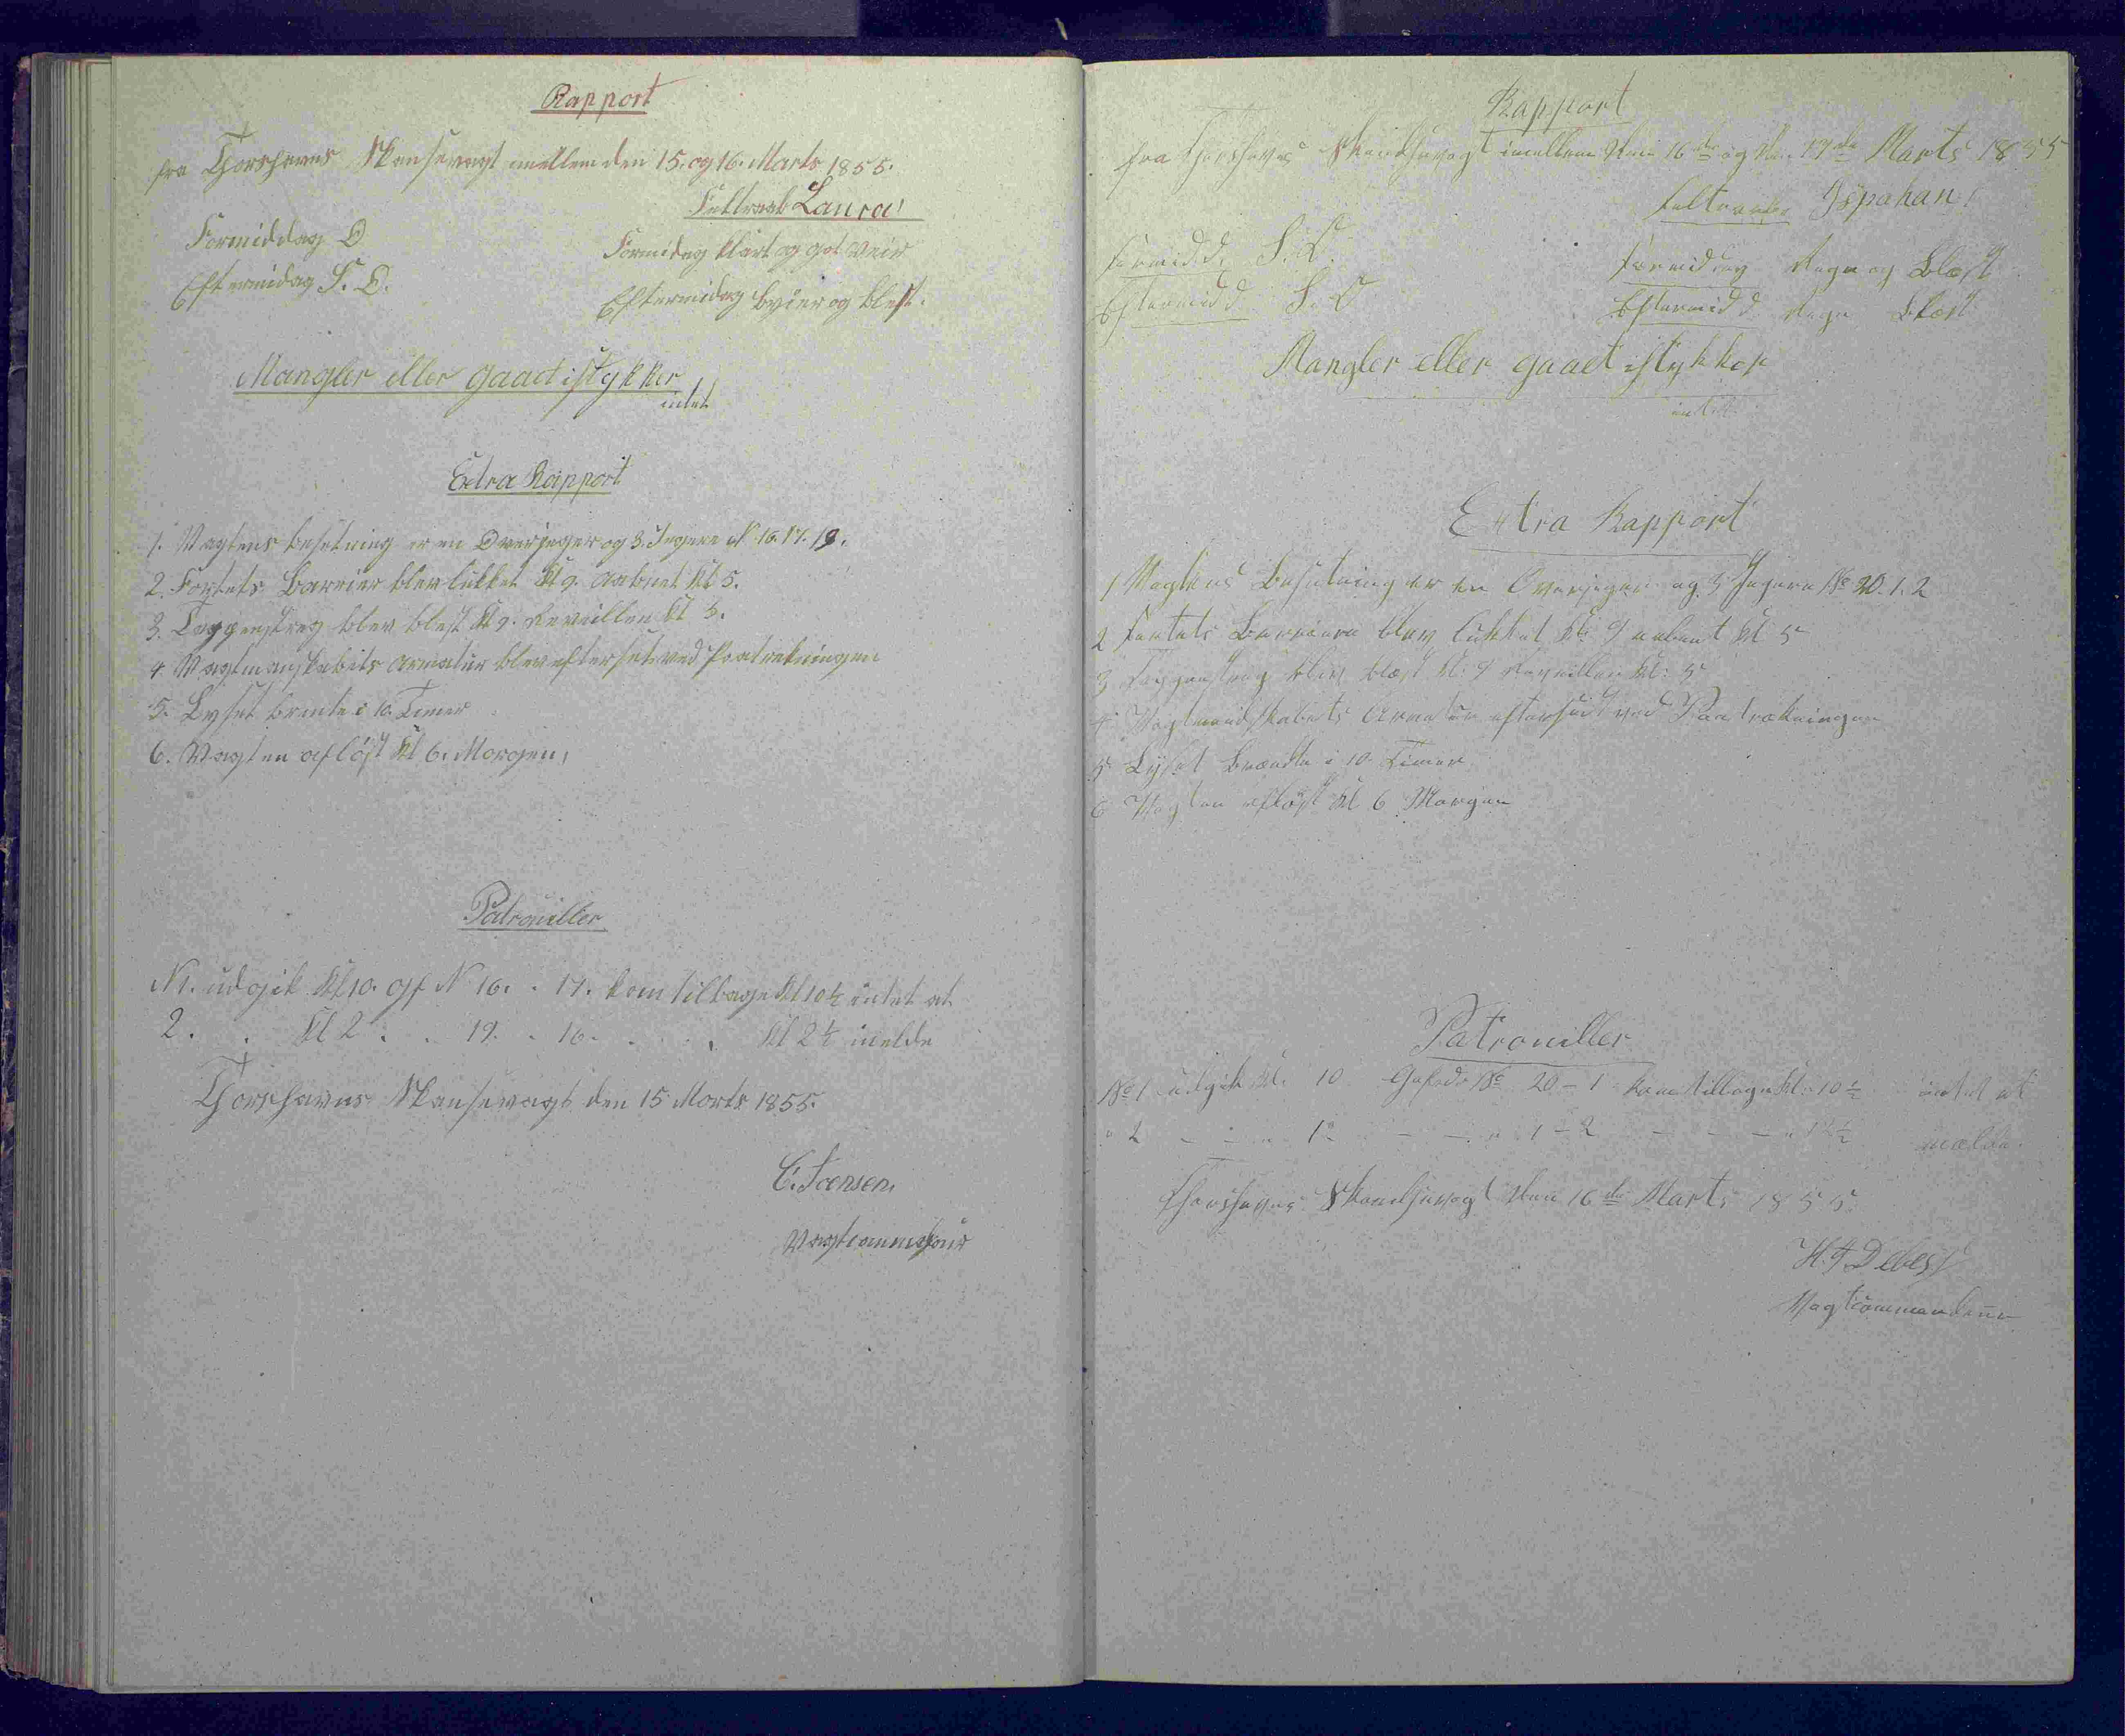 Rapport
fra Thorshavns Skansevagt mellem den 15. og 16. Marts 1855.
Feltraab Laura!
Formiddag O
Formidag klart og got veir
Eftermidag S. O.
Eftermidag byier og blest.
Mangler eller gaaet istykker
intet
Extra Rapport
1. Vagtens besetning er en Overjeger og 3. Jegere N 16. 17. 19.
2. Fortets Barrier blev lukket Kl 9. aabnet Kl 5.
3. Tappenstreg blev blest Kl 9. Reveillen Kl 5.
4 Vagtmanskabets armatur blev efterset ved Paatrekningen
5. Lyset brente i 10. Timer
6. Vagten afløst Kl 6. Morgen,
Patrouiller
N1. udgik Kl 10. gf N 16. . 17. kom tilbage Kl 10½ intet at
2. . Kl 2 . . 19. . 16. . . . . Kl 2½ melde
Thorshavns Skansevagt den 15 Marts 1855.
C. Joensen,
Vagtcommandeur
Rapport
fra Thorshavns Skandsevagt imellem Den 16de og den 17de Marts 1855
Feltraab Ispahan!
Formidd. S. O.
Formidag Regn og Blæst
Eftermidd S. O
Eftermidd. Regn Blæst
Mangler eller gaaet istykker
intet
Extra Rapport
1 Vagtens Besætning er en Overjeger og 3 Jegere No 20. 1. 2
2 Fortets Barriere blev lukket Kl 9 aabent Kl 5
3 Tappenstreg blev blæst Kl: 9 Reveillen Kl: 5
4 Vagtmandskabets Armatur efterseet ved Paatrækningen
5 Lyset brændte i 10 Timer
6 Vagten afløst Kl 6 Morgen
Patrouiller
No 1 udgik Kl. 10 Gefr No 20 - 1 kom tilbage Kl. 10½ intet at
" 2 - - " 12 - - " 1 - 2 - - - " 12½ mælde.
Thorshavns Skandsevagt Den 16de Marts 1855
H. J. Debes
Vagtcommandeur